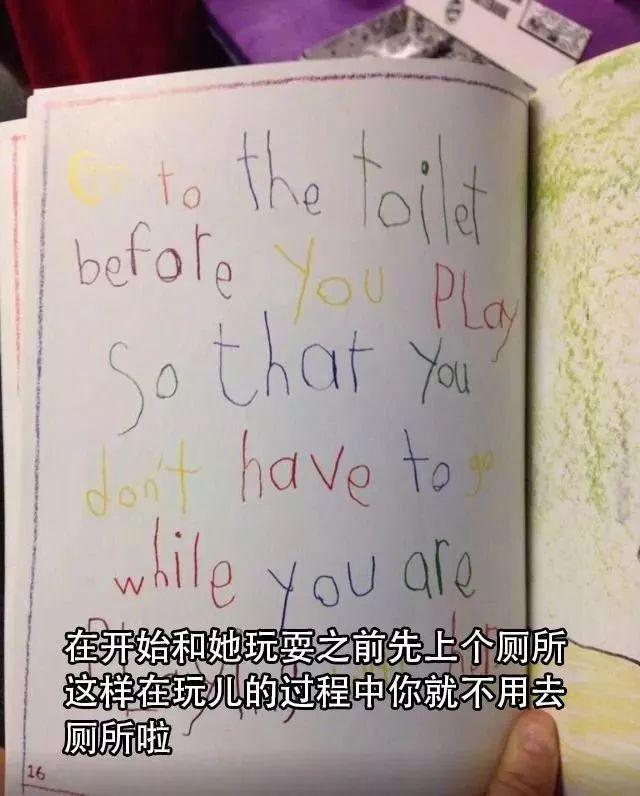 Go to the toilet
before you PLay
So that you
don't have to go
while you are
在开始和她玩耍之前先上个厕所
这样在玩儿的过程中你就不用去
厕所啦
16